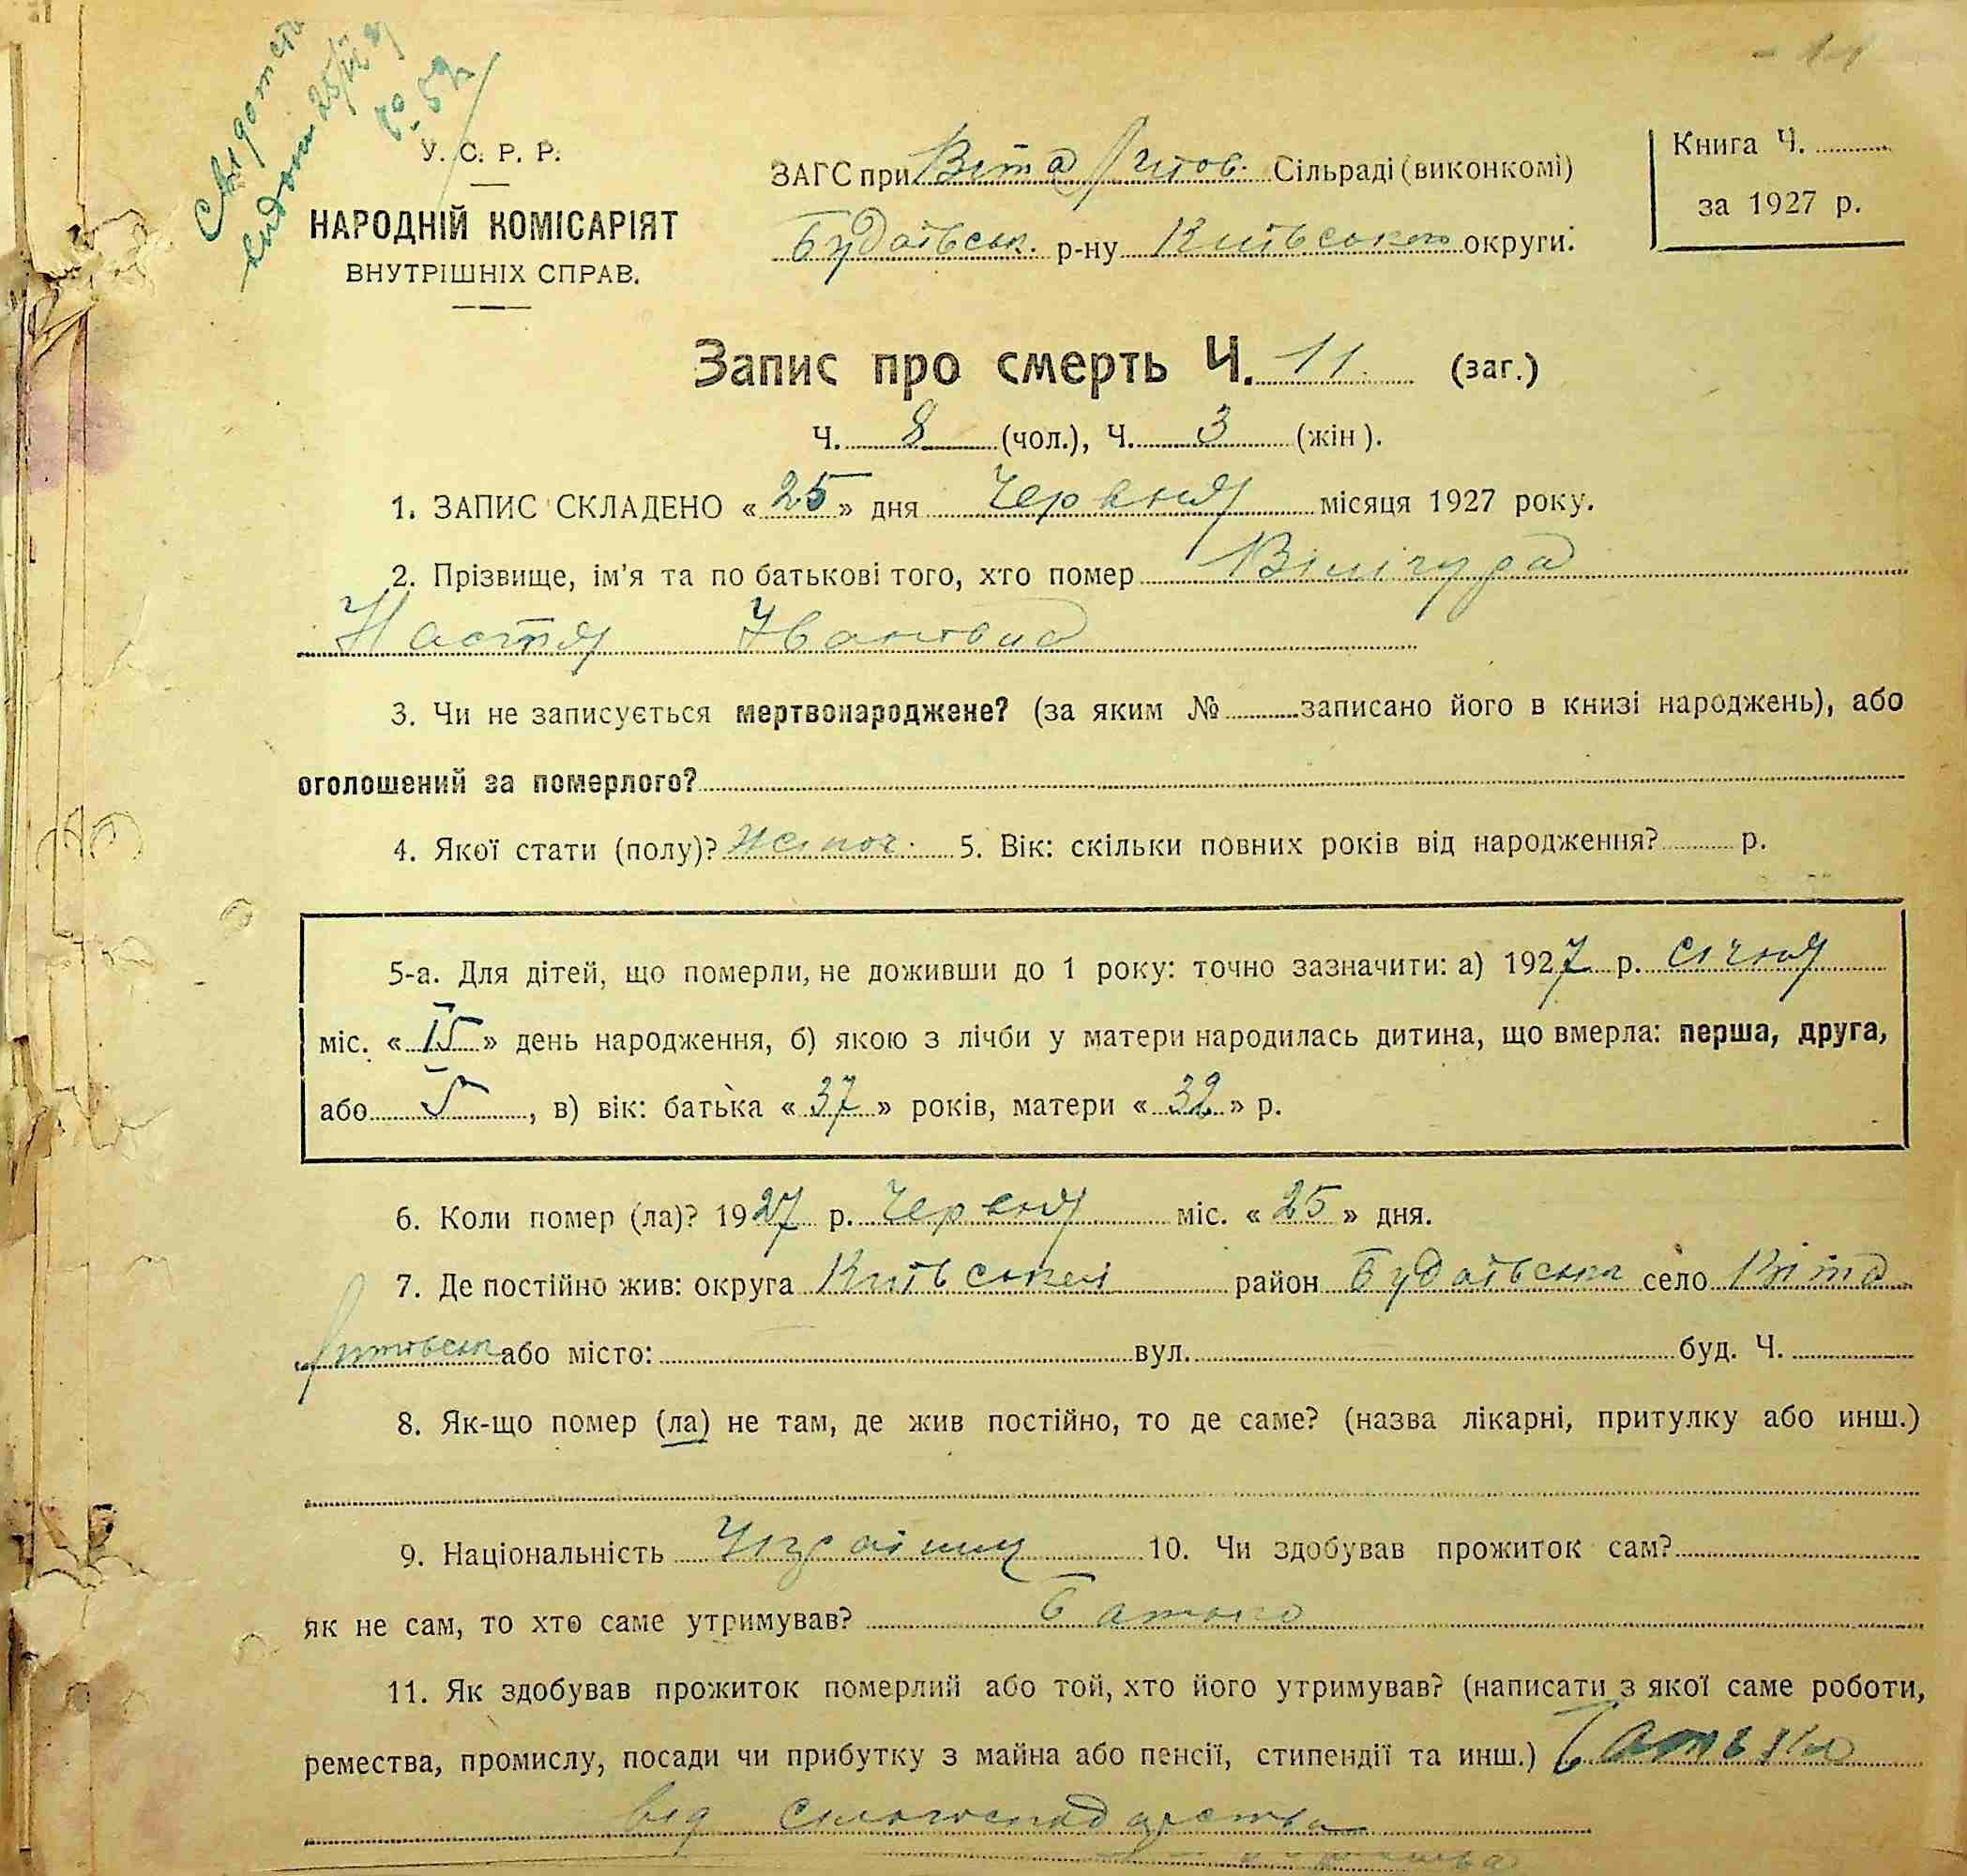 - 11
Свідотств
видани 25/VI
У. С. Р. Р.
НАРОДНІЙ КОМІСАРІЯТ
ВНУТРІШНІХ СПРАВ.
ЗАГС при Віта Литов. Сільраді (виконкомі)
Будаївськ. р-ну Київського округи.
Книга Ч. ..........
за 1927 р.
Запис про смерть Ч. 11 (заг.)
Ч. 8 (чол.), Ч. 3 (жін).
1. ЗАПИС СКЛАДЕНО « 25 » дня Червня місяця 1927 року.
2. Прізвище, ім'я та по батькові того, хто помер Вінігура
Настя Іванівна
3. Чи не записується мертвонароджене? (за яким № ..........записано його в книзі народжень), або
оголошений за померлого?
4. Якої стати (полу)? жіноч. 5. Вік: скільки повних років від народження? .......... р.
5-а. Для дітей, що померли, не доживши до 1 року: точно зазначити: а) 1927 р. січня
міс. « 15 » день народження, б) якою з лічби у матери народилась дитина, що вмерла: перша, друга,
або 5 , в) вік: батька « 37 » років, матери « 32 » р.
6. Коли помер (ла)? 1927 р. Червня міс. « 25 » дня.
7. Де постійно жив: округа Київської район Будаївськи село Віта
Литовськ або місто: вул. буд. Ч.
8. Як-що помер (ла) не там, де жив постійно, то де саме? (назва лікарні, притулку або инш.)
9. Національність 10. Чи здобував прожиток сам?
як не сам, то хто саме утримував? Батько
11. Як здобував прожиток померлий або той, хто його утримував? (написати з якої саме роботи,
ремества, промислу, посади чи прибутку з майна або пенсії, стипендії та инш.) Батько
від сільгосподарства